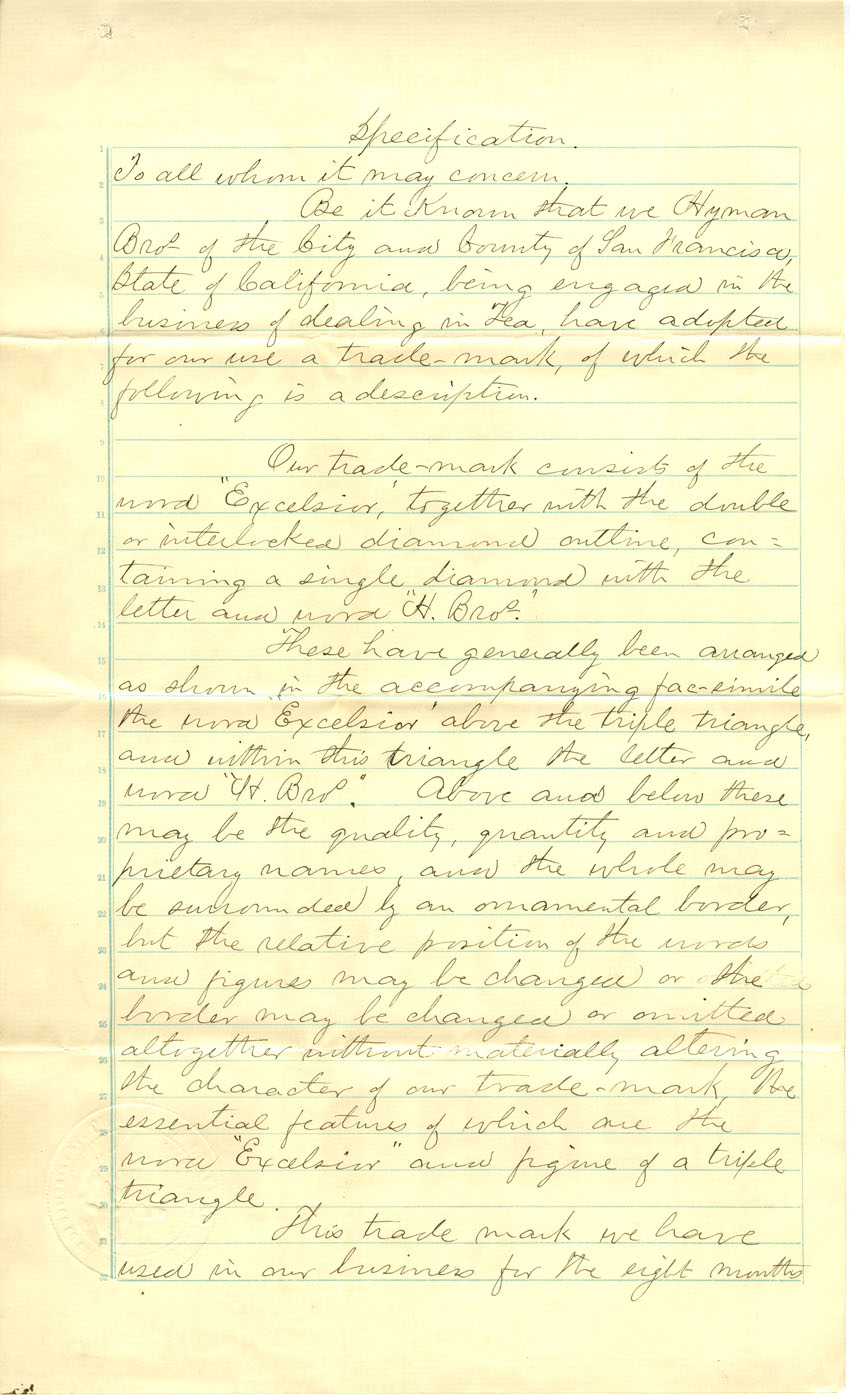 Specification.
To all whom it may concern.
Be it Known that we Hyman
Bros of the City and County of San Francisco,
State of California, being engaged in the
business of dealing in Tea, have adopted
for our use a trade-mark, of which the
following is a description.
Our trade-mark consists of the
word "Excelsior," together with the double
or interlocked diamond outline, con=
taining a single diamond with the
letter and word "H. Bros."
These have generally been arranged
as shown in the accompanying fac-simile
the word "Excelsior" above the triple triangle,
and within this triangle the letter and
word "H. Bros". Above and below these
may be the quality, quantity and pro=
prietary names, and the whole may
be surrounded by an ornamental border,
but the relative position of the words
and figures may be changed or the
border may be changed or omitted
altogether without materially altering
the character of our trade-mark, the
essential features of which are the
word "Excelsior" and figure of a triple
triangle.
This trade mark we have
used in our business for the eight months
1
2
3
4
5
6
7
8
9
10
11
12
13
14
15
16
17
18
19
20
21
22
23
24
25
26
27
28
29
30
31
32